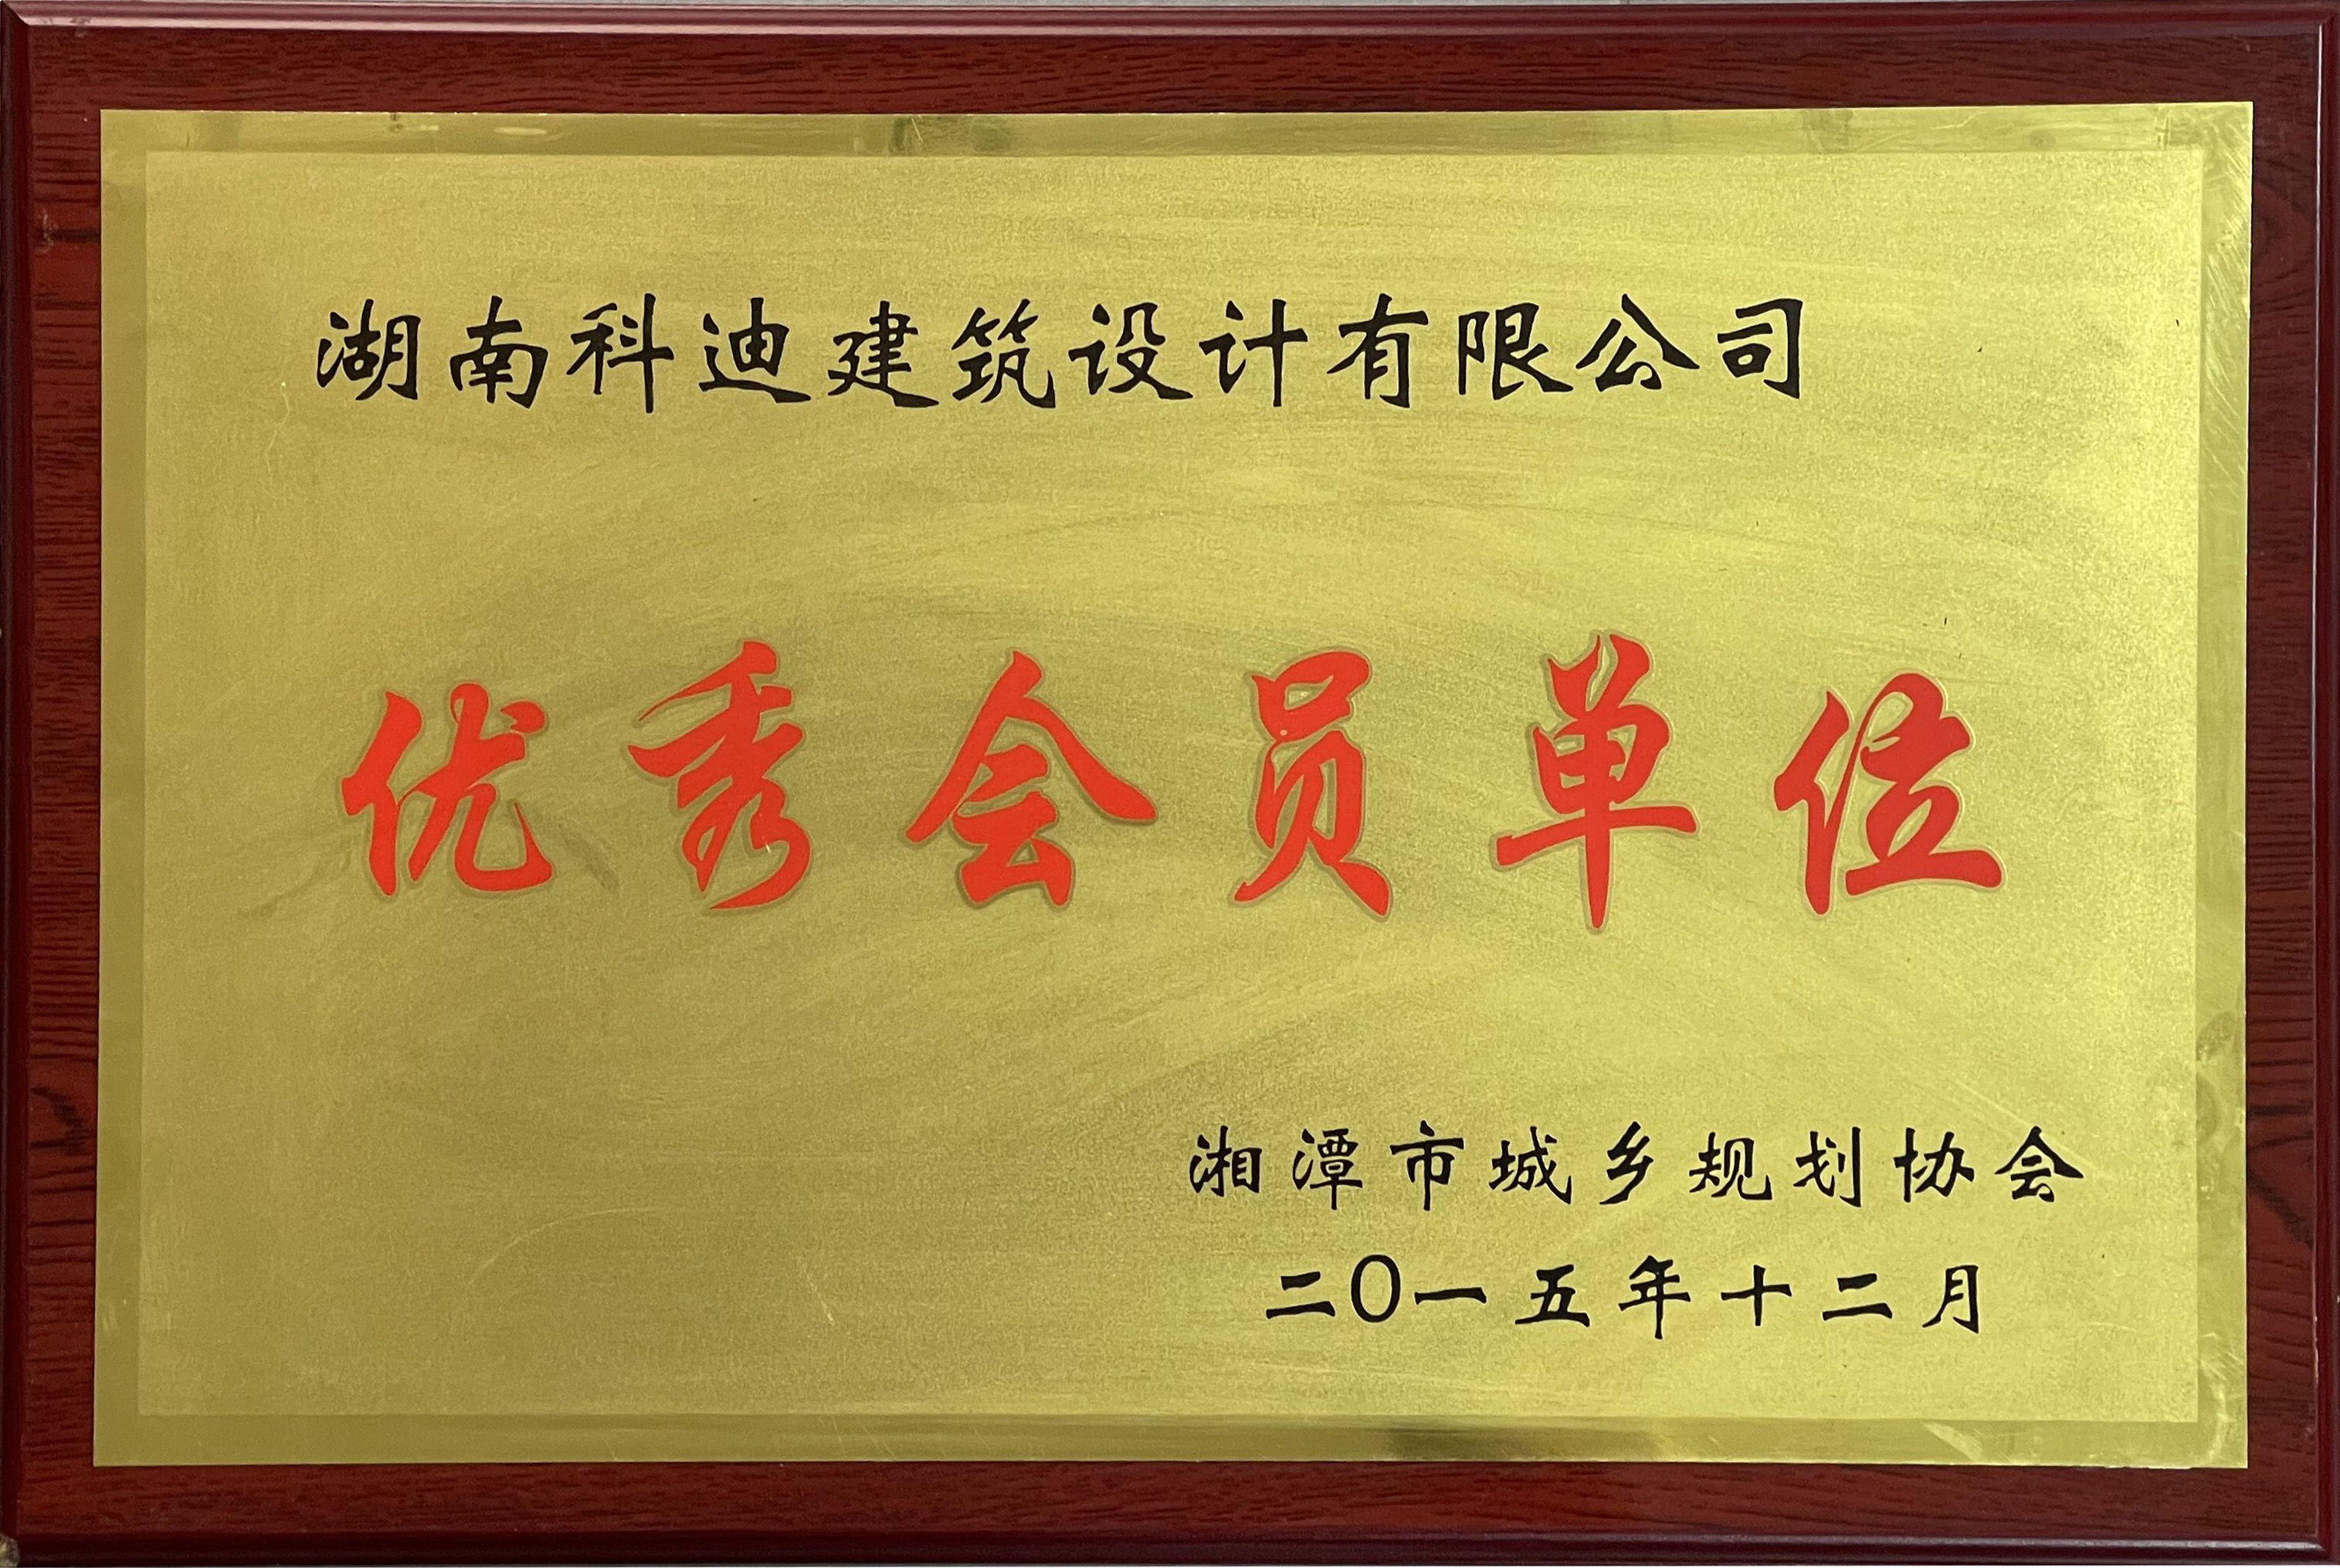 湖南科迪建筑设计有限公司
优秀会员单位
湘潭市城乡规划协会
二〇一五年十二月